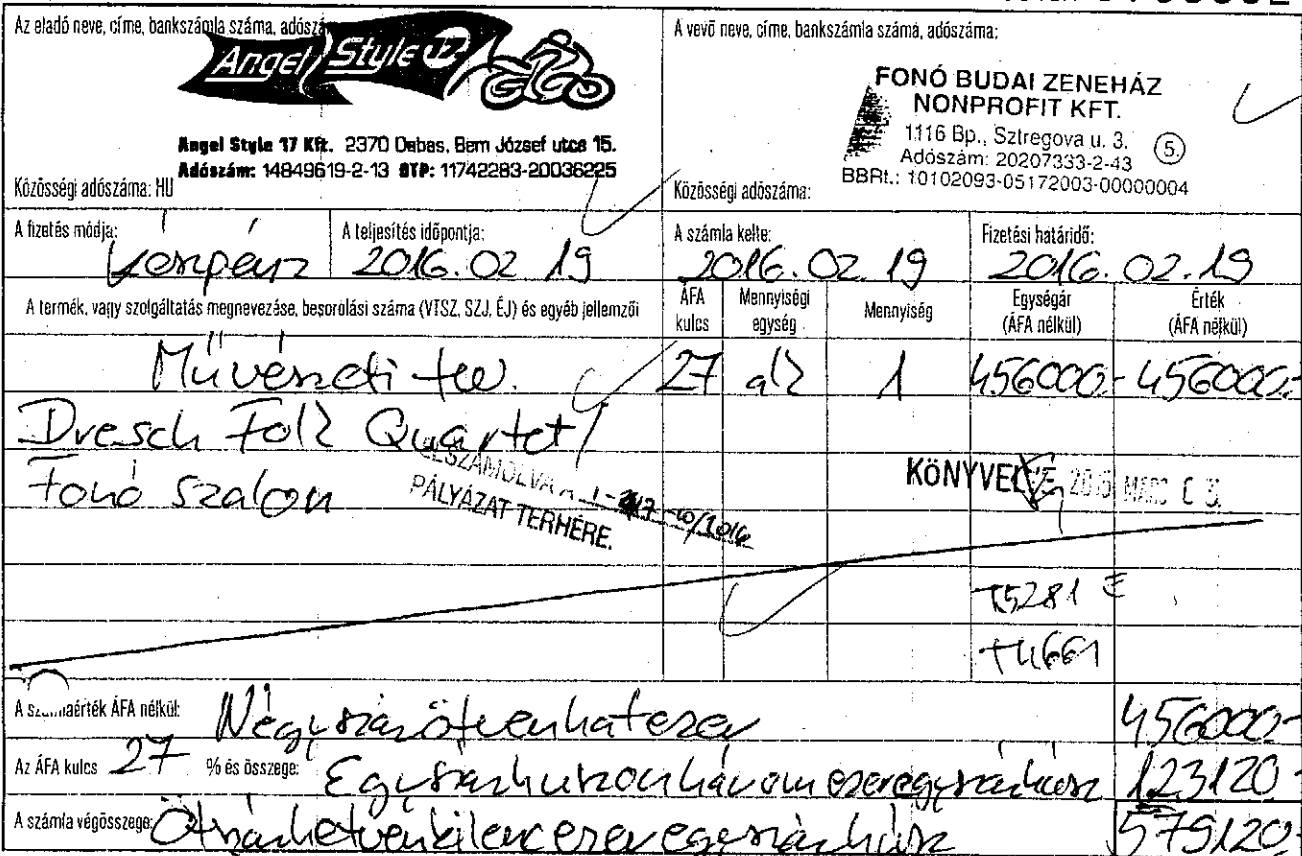 Az eladó neve, címe, bankszámla száma, adószá
Angel Style
Angel Style 17 Kft. 2370 Dabas, Bem József utca 15.
Adószám: 14849619-2-13 OTP: 11742283-20036225
Közösségi adószáma: HU
A vevő neve, címe, bankszámla száma, adószáma:
FONÓ BUDAI ZENEHÁZ
NONPROFIT KFT.
1116 Bp., Sztregova u. 3.
5.
Adószám: 20207333-2-43
BBRt.: 10102093-05172003-00000004
Közösségi adószáma:
A fizetés módja: készpénz
A teljesítés időpontja: 2016.02 19
A számla kelte: 2016.02 19
Fizetési határidő: 2016.02.19
A termék, vagy szolgáltatás megnevezése, besorolási száma (VTSZ, SZJ, ÉJ) és egyéb jellemzői
ÁFA kulcs
Mennyiségi egység
Mennyiség
Egységár (ÁFA nélkül)
Érték (ÁFA nélkül)
Művészeti tev. 27 alk 1 456000.- 456000.-
Dresch Folk Quartet/
Fonó szalon
PÁLYÁZAT TERHÉRE.
KÖNYVELVE
A számlaérték ÁFA nélkül: Négyszázötvenhatezer 456000.-
Az ÁFA kulcs 27 % és összege: Egyszázhuszonháromezeregyszázhúsz 123120.-
A számla végösszege: Ötszázhetvenkilencezeregyszázhúsz 579120.-